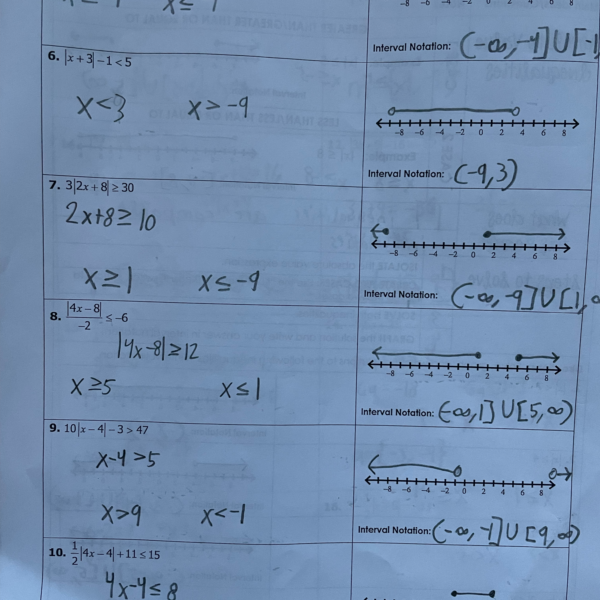 x ≤
-8 -6 -4 -2 0 2 4 6 8
Interval Notation: (-∞, -4] U [-1
6. |x + 3| - 1 < 5
x < 3 x > -9
-8 -6 -4 -2 0 2 4 6 8
Interval Notation: (-9, 3)
7. 3|2x + 8| ≥ 30
2x+8 ≥ 10
x ≥ 1 x ≤ -9
-8 -6 -4 -2 0 2 4 6 8
Interval Notation: (-∞, -9] U [1, ∞
8. |4x - 8| / -2 ≤ -6
|4x-8| ≥ 12
x ≥ 5 x ≤ 1
-8 -6 -4 -2 0 2 4 6 8
Interval Notation: (-∞, 1] U [5, ∞)
9. 10|x - 4| - 3 > 47
x-4 > 5
x > 9 x < -1
-8 -6 -4 -2 0 2 4 6 8
Interval Notation: (-∞, -1] U [9, ∞)
10. 1/2|4x - 4| + 11 ≤ 15
4x-4 ≤ 8